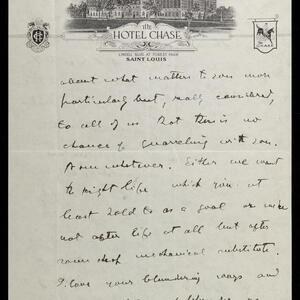 THE
HOTEL CHASE
LINDELL BLVD. AT FOREST PARK
SAINT LOUIS
about what matters to you most
particularly but, really considered,
to all of us. But there is no
chance of quarreling with you.
None whatever. Either we want
the might life which you at
least hold to as a goal or we're
not after life at all but after
some cheap mechanical substitute.
I love your blundering ways and